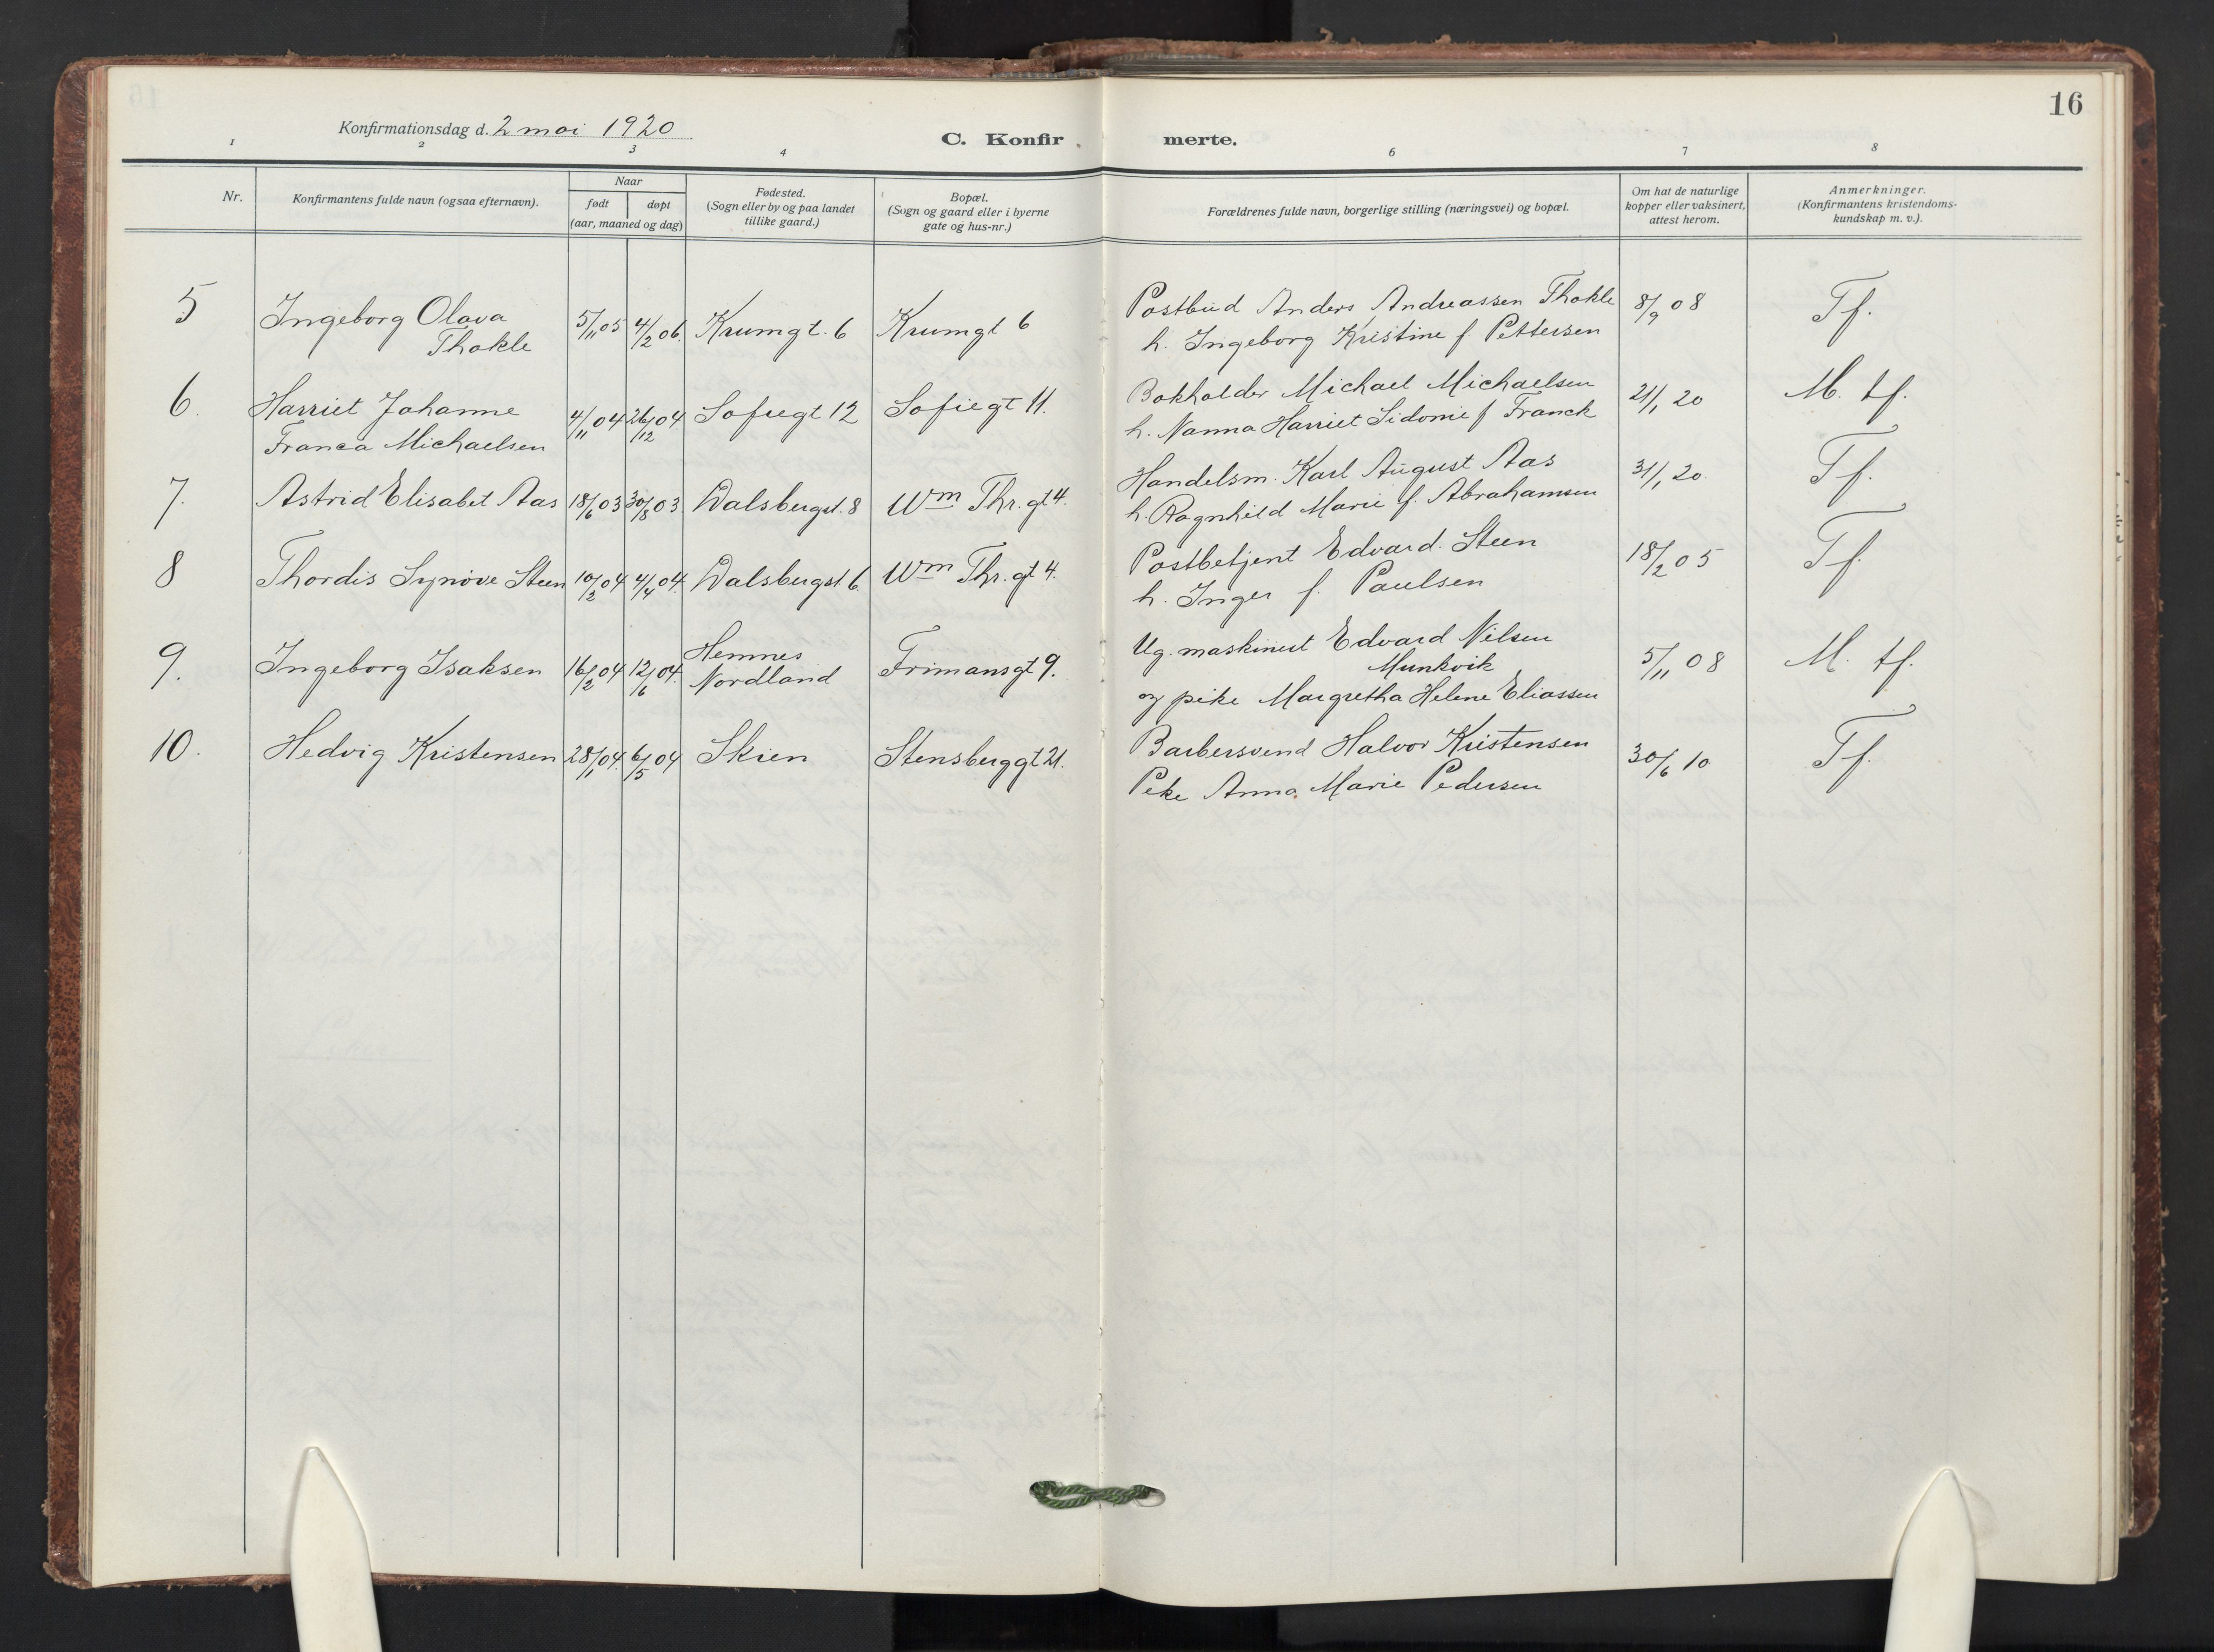 16
Konfirmationsdag d. 2 mai 1920
C. Konfirmerte.
1 2 3 4 6 7 8
Nr.
Konfirmantens fulde navn (ogsaa efternavn).
Naar
født døpt
(aar, maaned og dag)
Fødested.
(Sogn eller by og paa landet
tillike gaard.)
Bopæl.
(Sogn og gaard eller i byerne
gate og hus-nr.)
Forældrenes fulde navn, borgerlige stilling (næringsvei) og bopæl.
Om hat de naturlige
kopper eller vaksinert,
attest herom.
Anmerkninger.
(Konfirmantens kristendoms-
kundskap m. v.).
5 Ingeborg Olava
Thokle
5/11 05 4/2 06. Krumgt. 6 Krumgt 6
Postbud Anders Andreassen Thokle
h. Ingeborg Kristine f Pettersen
8/9 08 Tf.
6. Harriet Johanne
Franca Michaelsen
4/11 04 26/12 04 Sofiegt 12 Sofiegt 11.
Bokholder Michael Michaelsen
h. Nanna Harriet Sidonie f Franck
21/1 20 M. tf.
7. Astrid Elisabet Aas 18/6 03 30/8 03. Dalsbergst. 8 Wm Thr. gt 4.
Handelsm. Karl August Aas
h. Ragnhild Marie f. Abrahamsen
31/1 20. Tf.
8 Thordis Synøve Steen 10/2 04. 4/4 04. Dalsbergst 6. Wm Thr. gt 4.
Postbetjent Edvard Steen
h. Inger f. Paulsen
18/2 05 Tf.
9. Ingeborg Isaksen 16/2 04 12/6 04. Hemnes
Nordland
Frimansgt 9.
Ug. maskinist Edvard Nilsen
Munkvik
og pike Margretha Helene Eliassen
5/11 08 M. tf.
10. Hedvig Kristensen 28/1 04. 6/5 04 Skien Stensberggt 21.
Barbersvend Halvor Kristensen
Pike Anna Marie Pedersen
30/6 10 Tf.